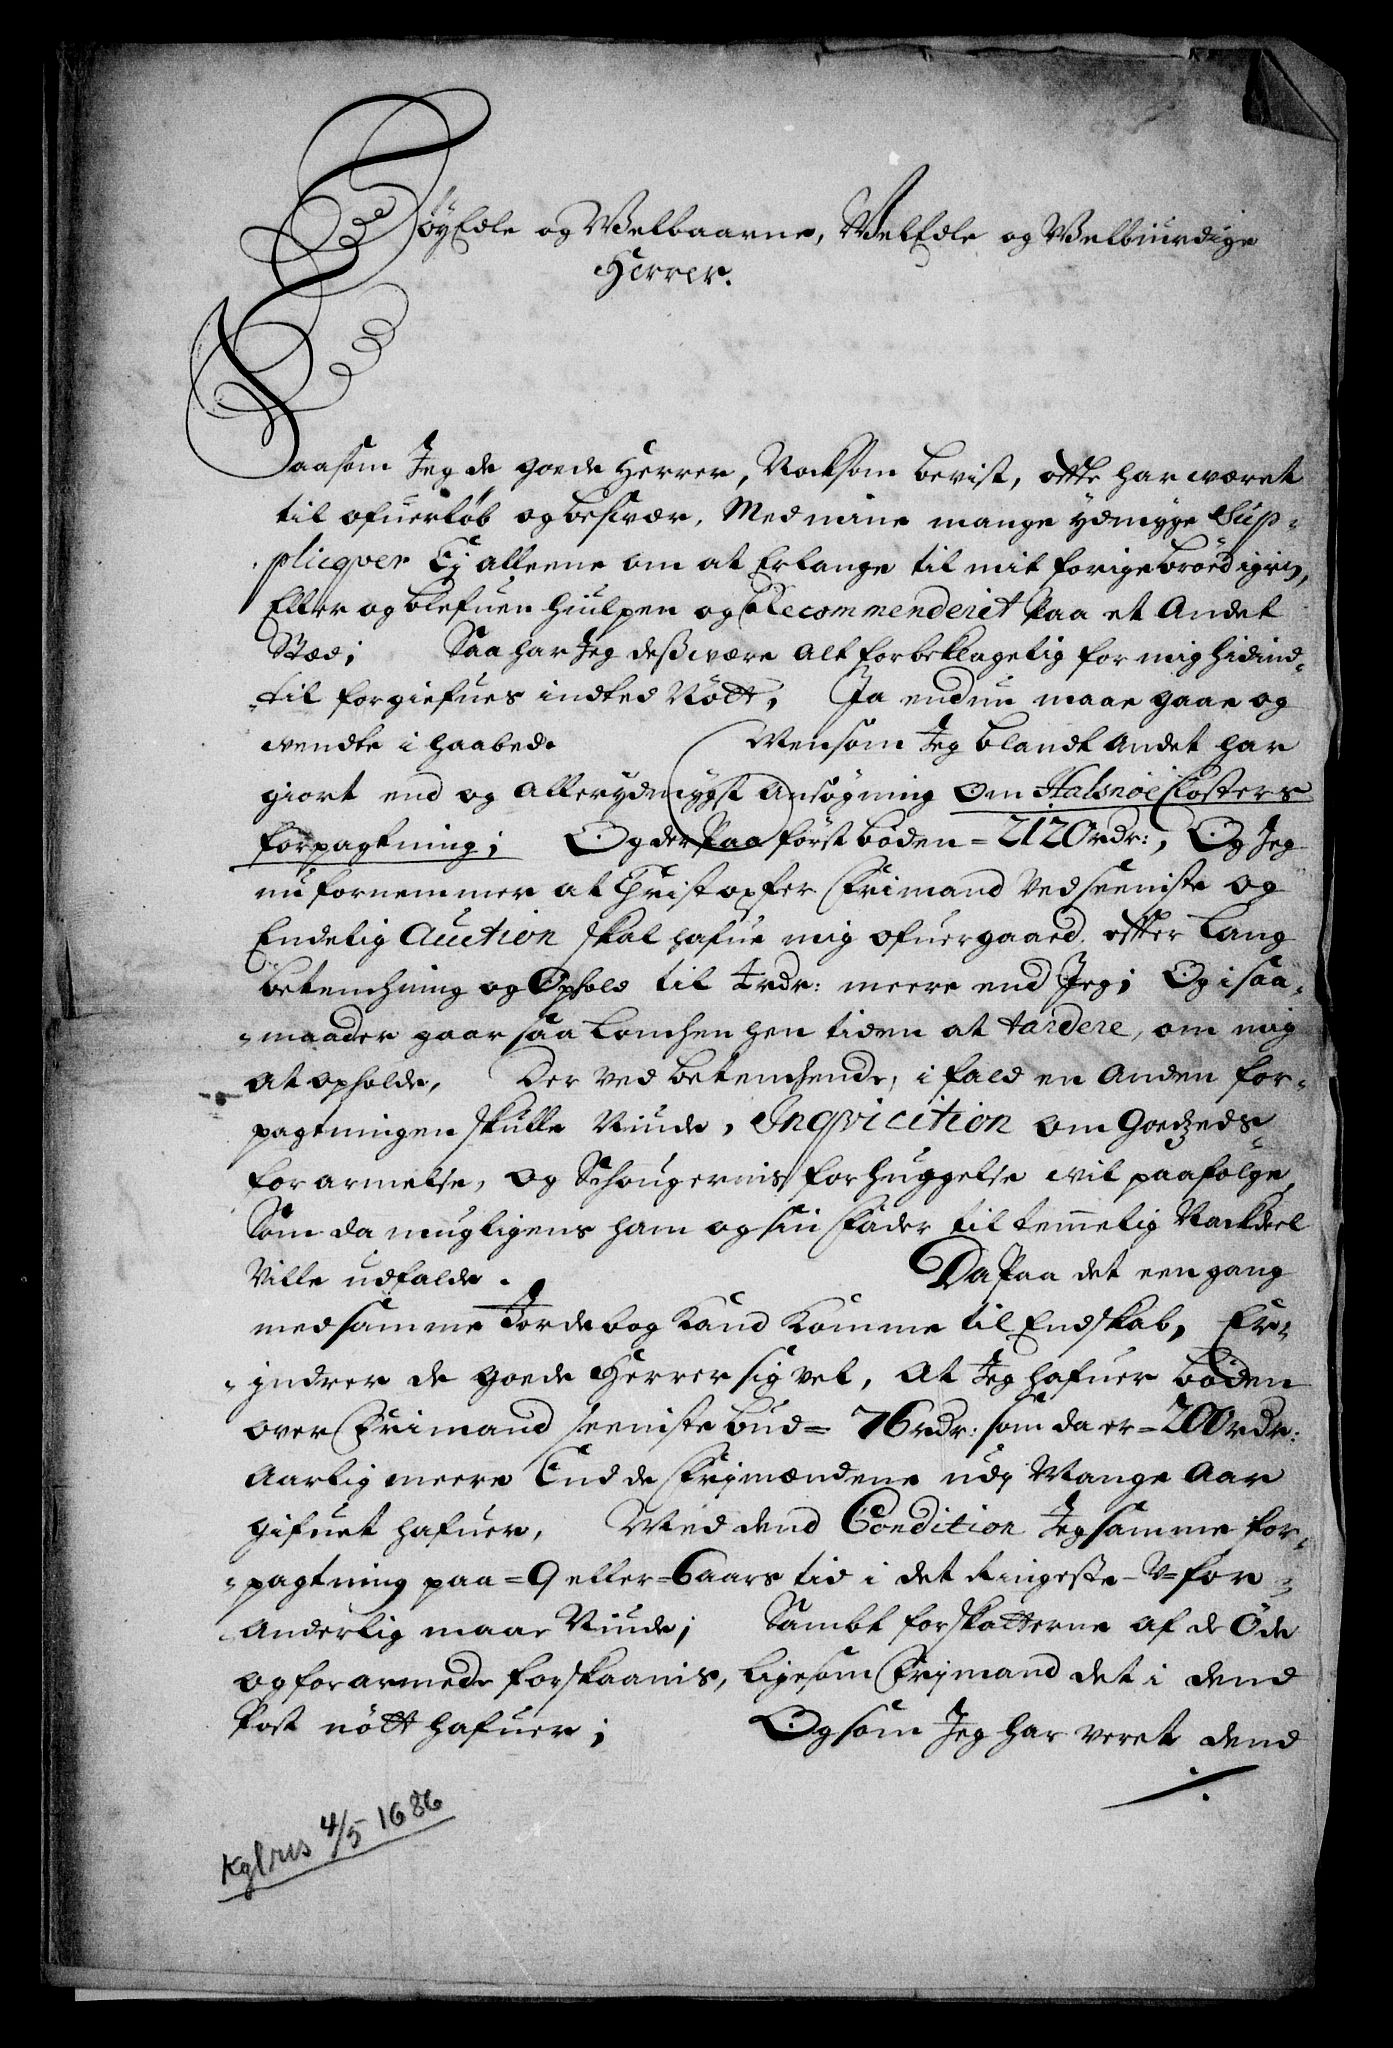 HöyEdle og Welbaarne, WelEdle og Welbiurdige
Herrer.
Saasom Jeg de goede Herrer, Nocksom bevist, offte har været
til ofuerløb og besvær, Med mine mange ydmyge Sup-
plicqver Ej alleene om at Erlange til mit forige brödigen,
Eller og blefuen hiulpen og Recommenderit paa et Andet
Stæd; Saa har Jeg desswære Alt forbeklagelig for mig hidind-
til forgiefues indted Nött, Ja endnu maae gaae og
wendte i haabed. Mensom Jeg blandt Andet har
giort end og Allerydmygst Ansögning om Halsnöe Closters
forpagtning; Og der paa först böden = 2120 rdr:, Og Jeg
nu fornemmer at Christopfer Frimand Ved seeniste og
Endelig Auction skal hafue mig ofuergaaed, effter lang
betenchning og Ophold til 4 rdr: meere end Jeg; Og i saa-
maader gaar saa lonchen hen tiden at tardere, om mig
at opholde, Der ved betenchende, i fald en Anden for-
pagtningen skulle Niude, Inqvicition om Goedzeds
forarmelse, og Schougernis forhuggelse vil paafölge,
Som da mugligens ham og sin Fader til temmelig Nackdeel
Ville udfalde. Da paa det een gang
med samme Jordebog Kand Komme til Endskab, Er-
indrer de goede Herrer sig vel, At Jeg hafuer böden
over Frimand seeniste bud = 76 rdr: som da er = 200 rdr:
Aarlig meere End de Frimændene udj Mange Aar
gifuet hafuer, Med dend Condition Jeg samme for-
pagtning paa = 9 eller = 6 aars tid i det ringeste u-for-
Anderlig maae Niude; Sambt forskatterne af de Öde
og forarmede forskaanis, ligesom Frimand det i dend
Post nött hafuer; Og som Jeg har veret dend
Kgl res 4/5 1686